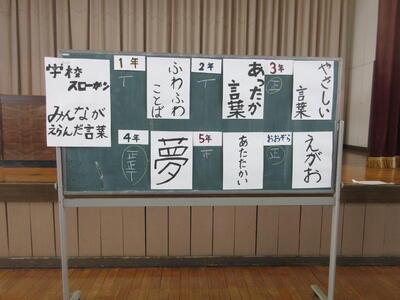 学校
スローガン
みんなが
えらんだ言葉
1年
ふわふわ
ことば
2年
あったか
言葉
3年
正
やさしい
言葉
4年
正正
夢
5年
あたたかい
おおぞら
正
えがお